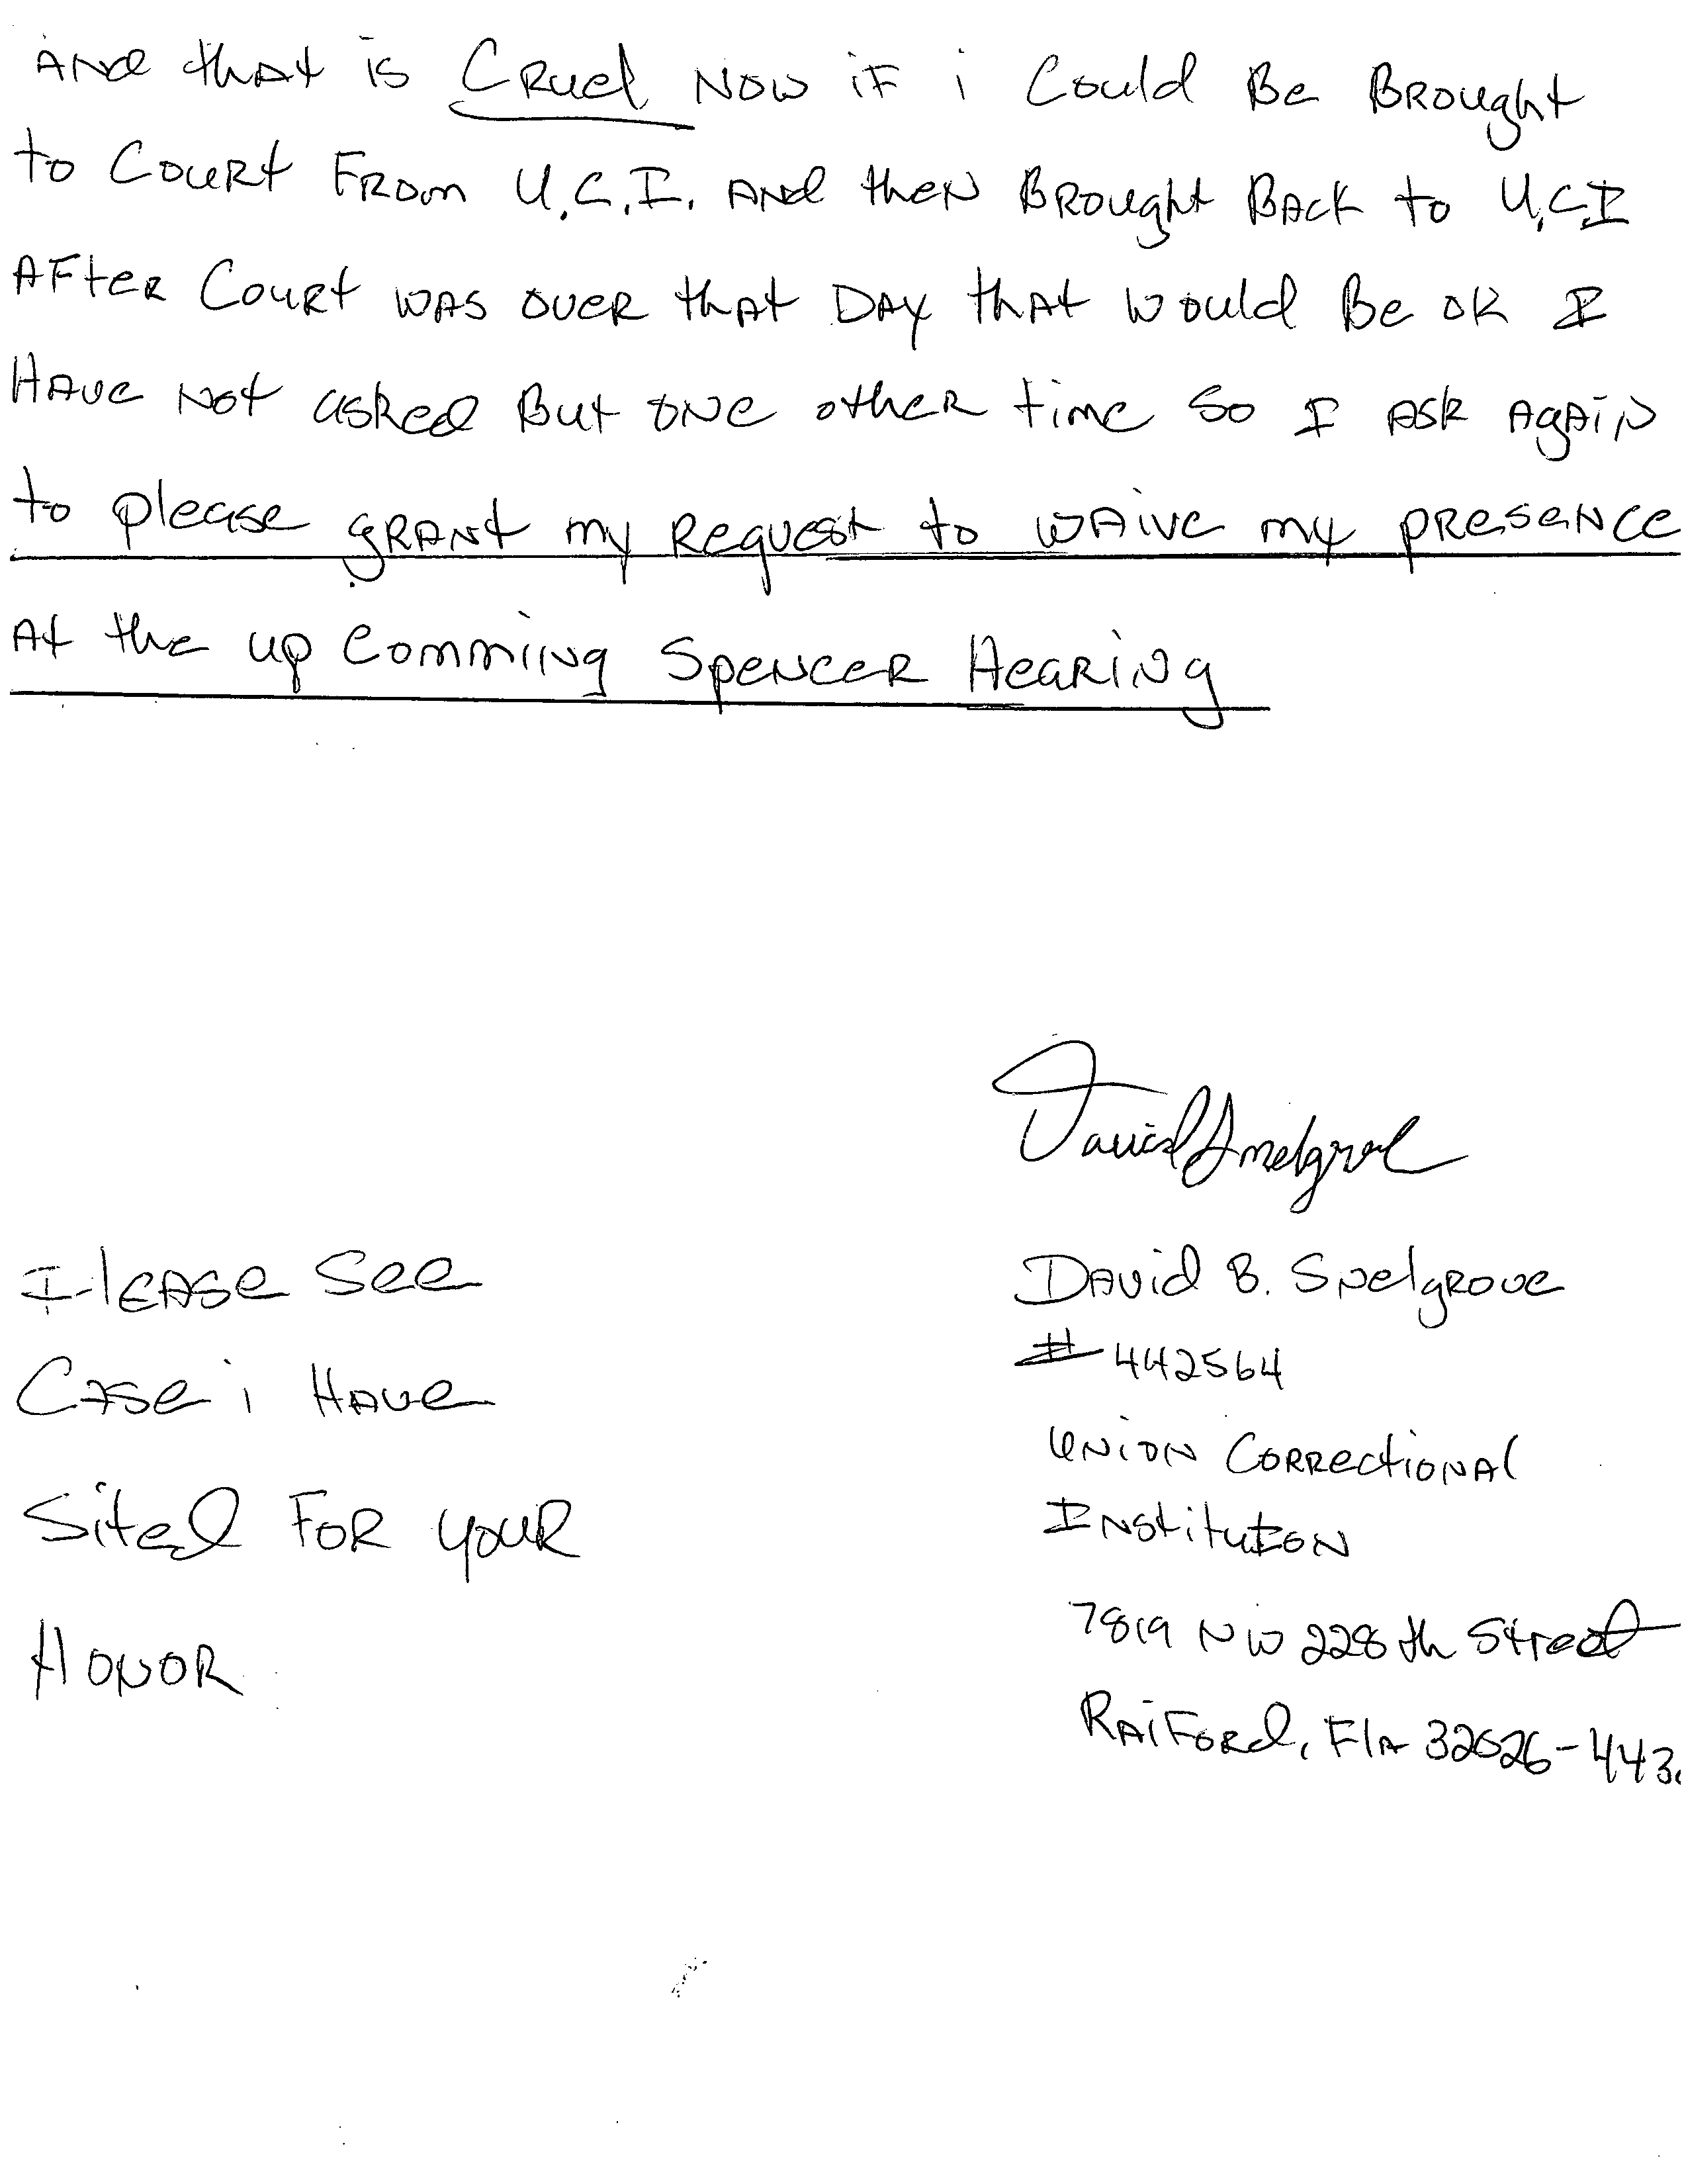 And that is Cruel Now if i Could Be Brought
to Court From U.C.I. And then Brought Back to U.C.I
After Court was over that Day that would Be ok I
Have Not asked But one other time So I ask Again
to please grant my Request to waive my presence
At the up Comming Spencer Hearing
David Snelgrove
Please See
Case i Have
Sited For your
Honor
David B. Snelgrove
# 442564
Union Correctional
Institution
7819 NW 228th Street
Raiford, Fla 32026-443